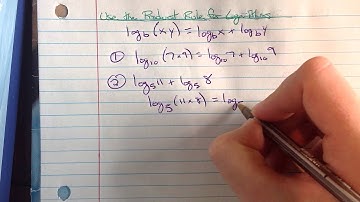 Use the Product Rule for Logarithms
log_b(xy) = log_b x + log_b y
① log₁₀(7×9) = log₁₀7 + log₁₀9
② log₅11 + log₅8
log₅(11×8) = log₅